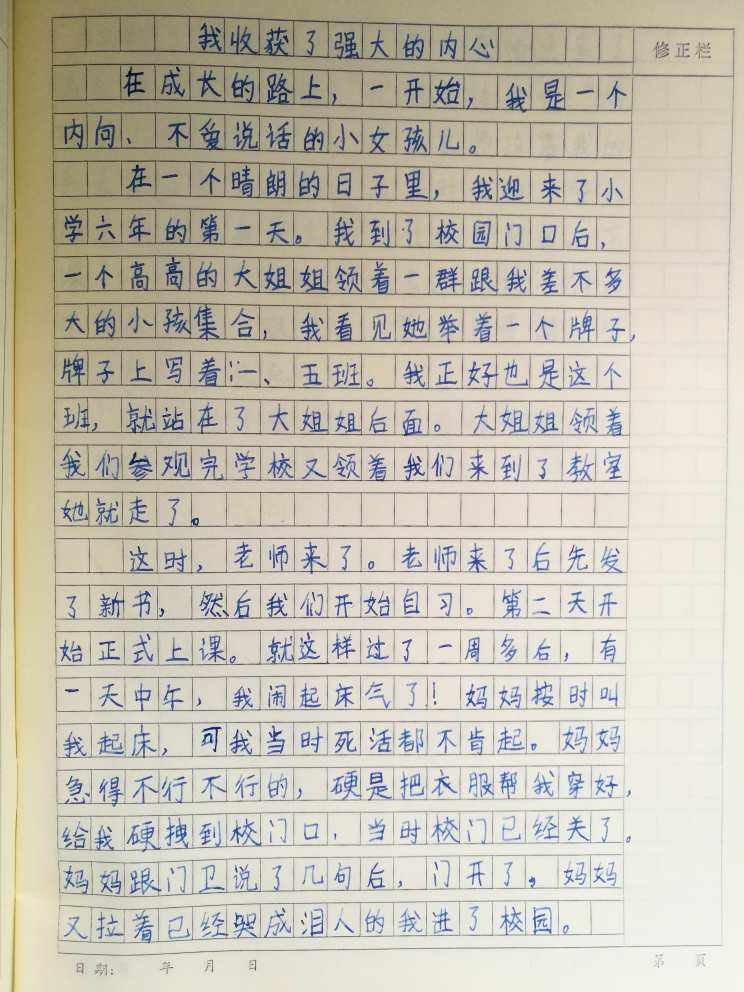 我收获了强大的内心
修正栏
在成长的路上，一开始，我是一个
内向、不爱说话的小女孩儿。
在一个晴朗的日子里，我迎来了小
学六年的第一天。我到了校园门口后，
一个高高的大姐姐领着一群跟我差不多
大的小孩集合，我看见她举着一个牌子，
牌子上写着：一、五班。我正好也是这个
班，就站在了大姐姐后面。大姐姐领着
我们参观完学校又领着我们来到了教室
她就走了。
这时，老师来了。老师来了后先发
了新书，然后我们开始自习。第二天开
始正式上课。就这样过了一周多后，有
一天中午，我闹起床气了！妈妈按时叫
我起床，可我当时死活都不肯起。妈妈
急得不行不行的，硬是把衣服帮我穿好，
给我硬拽到校门口，当时校门已经关了。
妈妈跟门卫说了几句后，门开了，妈妈
又拉着已经哭成泪人的我进了校园。
日期： 年 月 日
第 页